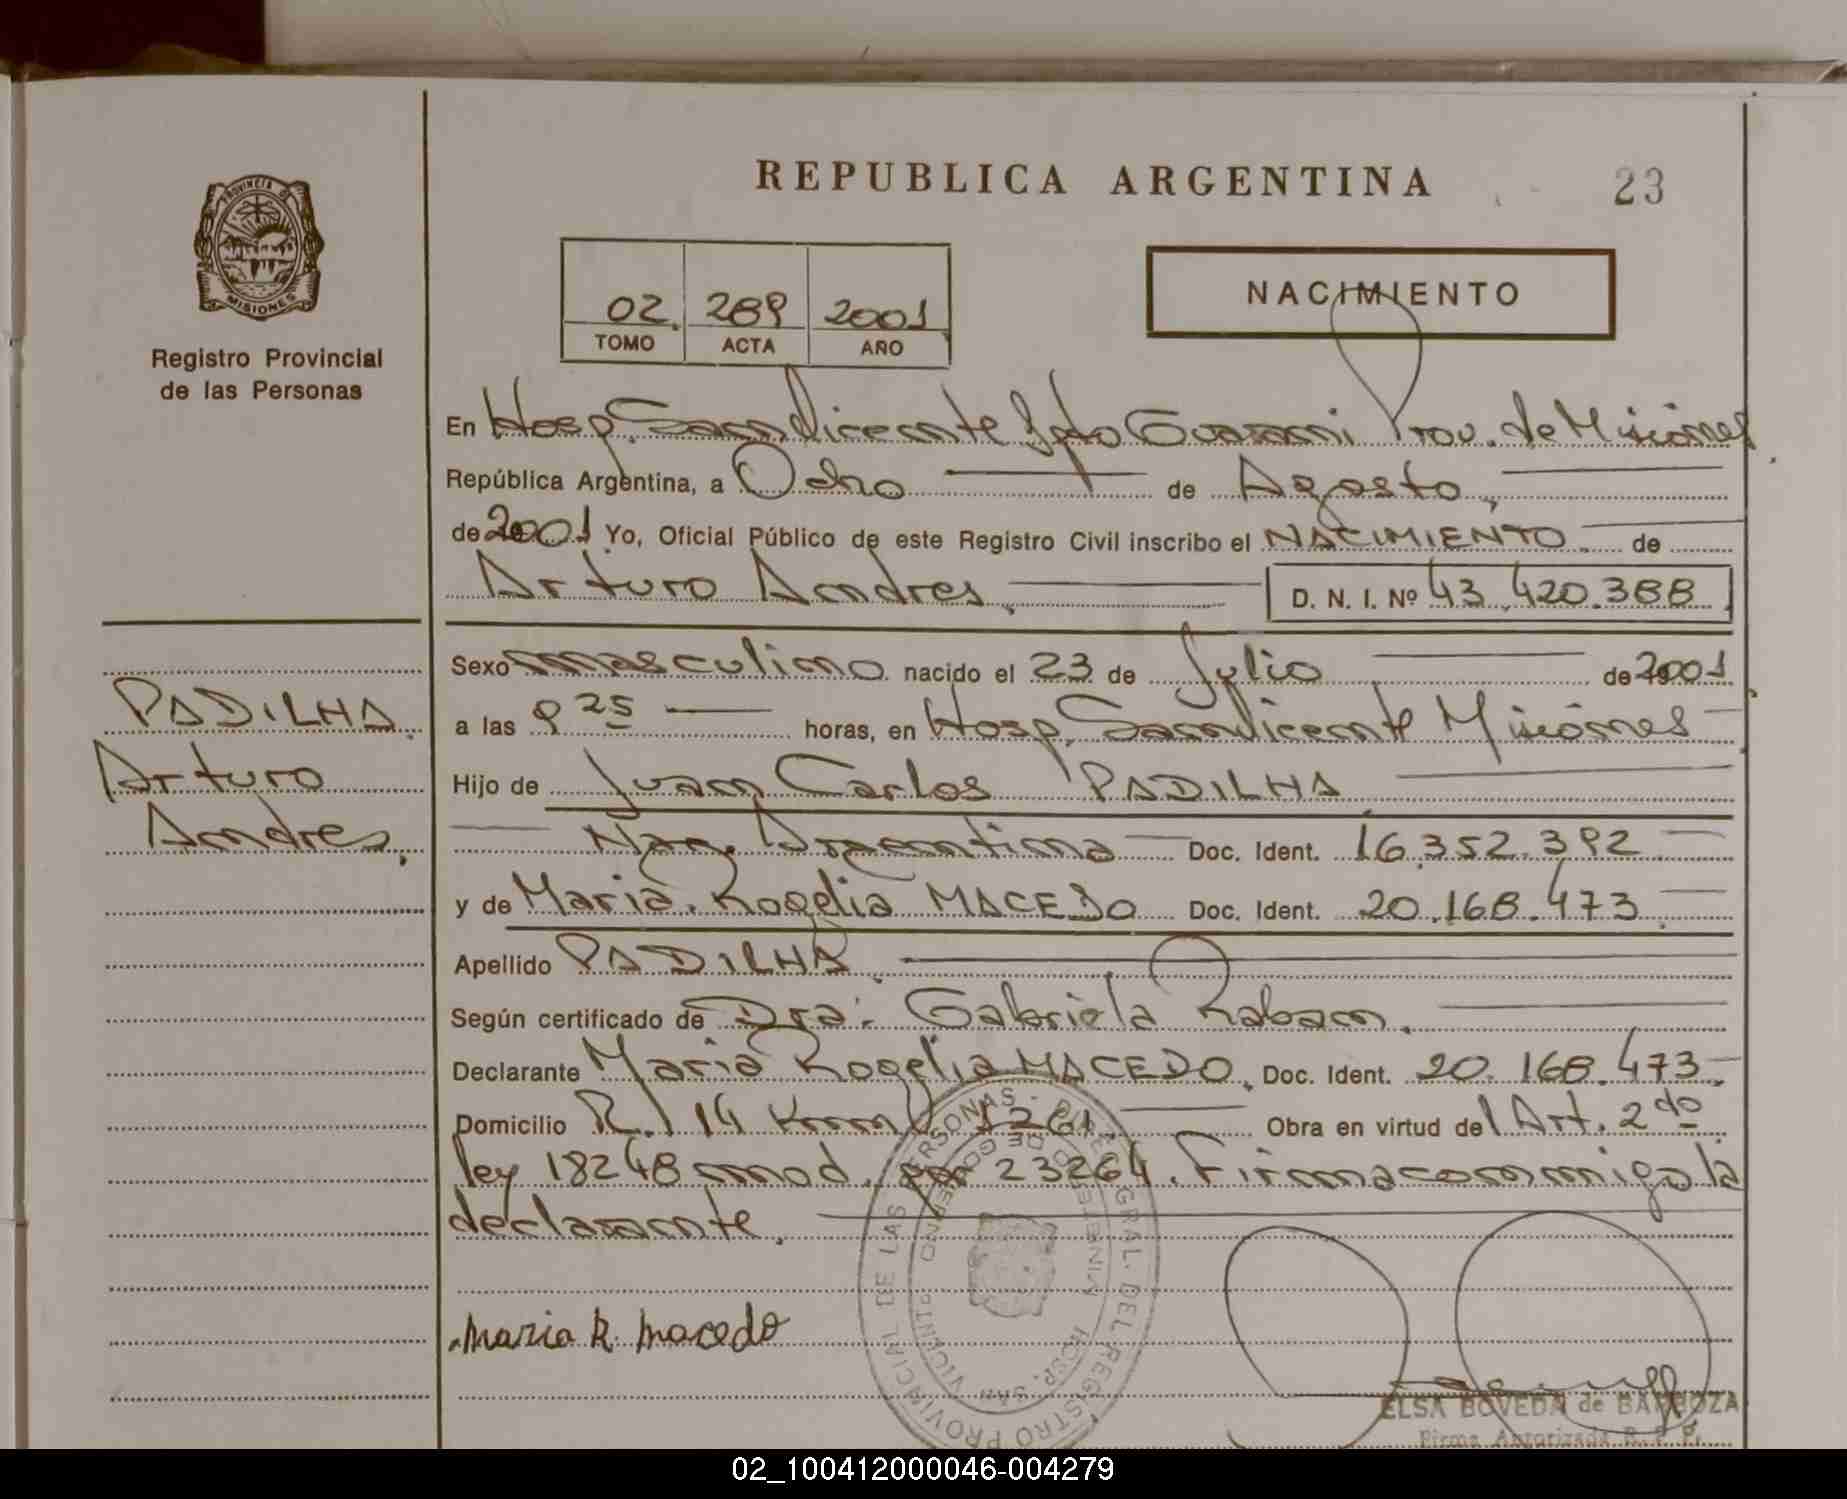 REPUBLICA ARGENTINA
23
PROVINCIA DE
MISIONES
Registro Provincial
de las Personas
02. 289 2001
TOMO ACTA AÑO
NACIMIENTO
En Hosp. San Vicente Dpto Guarani Prov. de Misiones
República Argentina, a Ocho de Agosto,
de 2001 Yo, Oficial Público de este Registro Civil inscribo el NACIMIENTO. de
Arturo Andres. D. N. I. Nº 43.420.388
Sexo masculino nacido el 23 de Julio de 2001
a las 9 25 horas, en Hosp. San Vicente Misiones
Hijo de Juan Carlos PADILHA
Nac. Argentina Doc. Ident. 16.352.392
y de Maria. Rogelia MACEDO Doc. Ident. 20.168.473
Apellido PADILHA.
Según certificado de Dra: Gabriela Raban.
Declarante Maria Rogelia MACEDO. Doc. Ident. 20.168.473.
Domicilio R. 14 Km 1261. Obra en virtud del Art. 2do
ley 18248 mod. por 23264. Firma conmigo la
declarante.
PADILHA.
Arturo
Andres.
Maria R. Macedo
REGISTRO PROVINCIAL DE LAS PERSONAS - DIREC. GRAL. DEL
HOSP. SAN VICENTE
ELSA BOVEDA de BARBOZA
Firma Autorizada R. P. P.
02_100412000046-004279